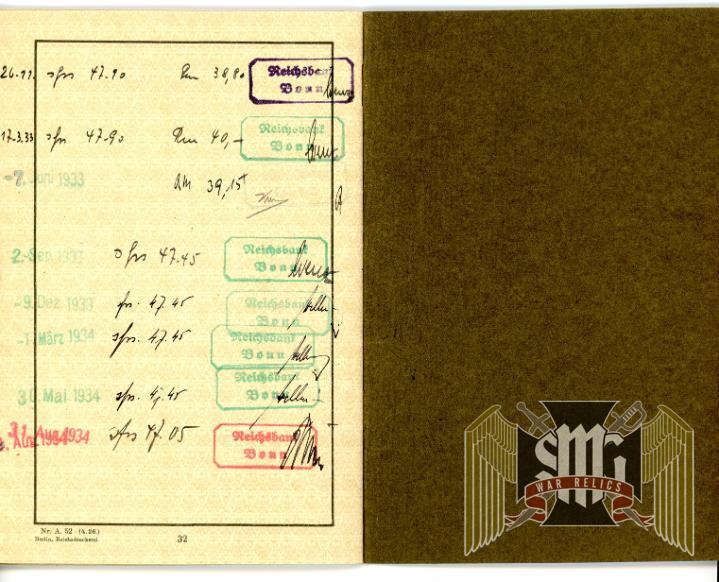 26.11. sfrs 47.90 Rm 38,80 Reichsbank
Bonn
17.3.33 sfrs 47.90 Rm 40,- Reichsbank
Bonn
-7. Juni 1933 RM 39,15
2.-Sep. 1933 sfrs 47.45 Reichsbank
Bonn
-9. Dez. 1933 frs. 47.45 Reichsbank
Bonn
-1. März 1934 sfrs. 47.45 Reichsbank
Bonn
30. Mai 1934 sfrs. 47.45 Reichsbank
Bonn
31. Aug. 1934 sfrs 47.05 Reichsbank
Bonn
Nr. A. 52 (4. 26.)
Berlin, Reichsdruckerei
32
SMG
WAR RELICS